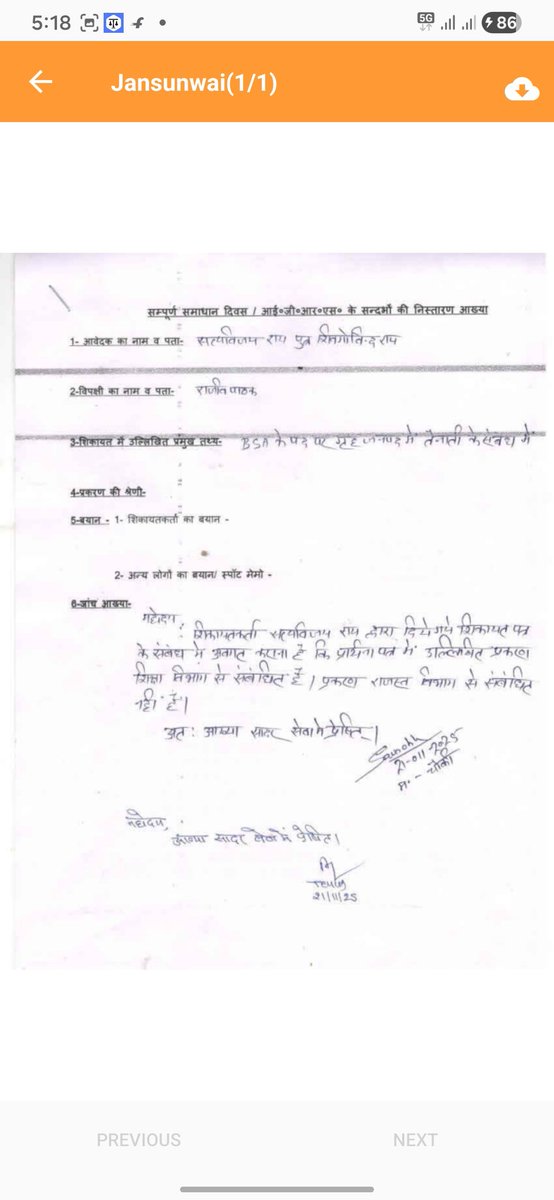 5:18
5G
86
Jansunwai(1/1)
सम्पूर्ण समाधान दिवस / आई०जी०आर०एस० के सन्दर्भो की निस्तारण आख्या
1- आवेदक का नाम व पता- सत्यविजय राय पुत्र
2-विपक्षी का नाम व पता- पाठक
3-शिकायत में उल्लिखित प्रमुख तथ्य- BSA के पद पर गृह जनपद में तैनाती के संबंध में
4-प्रकरण की श्रेणी-
5-बयान - 1- शिकायतकर्ता का बयान -
2- अन्य लोगों का बयान/ स्पॉट मेमो -
6-जांच आख्या-
महोदय,
शिकायतकर्ता सत्यविजय राय द्वारा दिये गये शिकायत पत्र
के संबंध में अवगत कराना है कि प्रार्थना पत्र में उल्लिखित प्रकरण
शिक्षा विभाग से संबंधित है। प्रकरण राजस्व विभाग से संबंधित
नहीं है।
अतः आख्या सादर सेवा में प्रेषित।
21-011-2025
महोदय,
आख्या सादर सेवा में प्रेषित।
21/11/25
PREVIOUS
NEXT